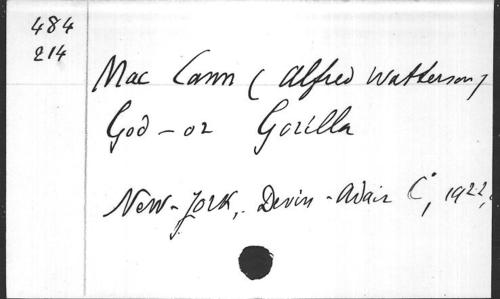 484
214
Mac Cann (Alfred Watterson)
God - or Gorilla
New-York, Devin-Adair C°, 1922,